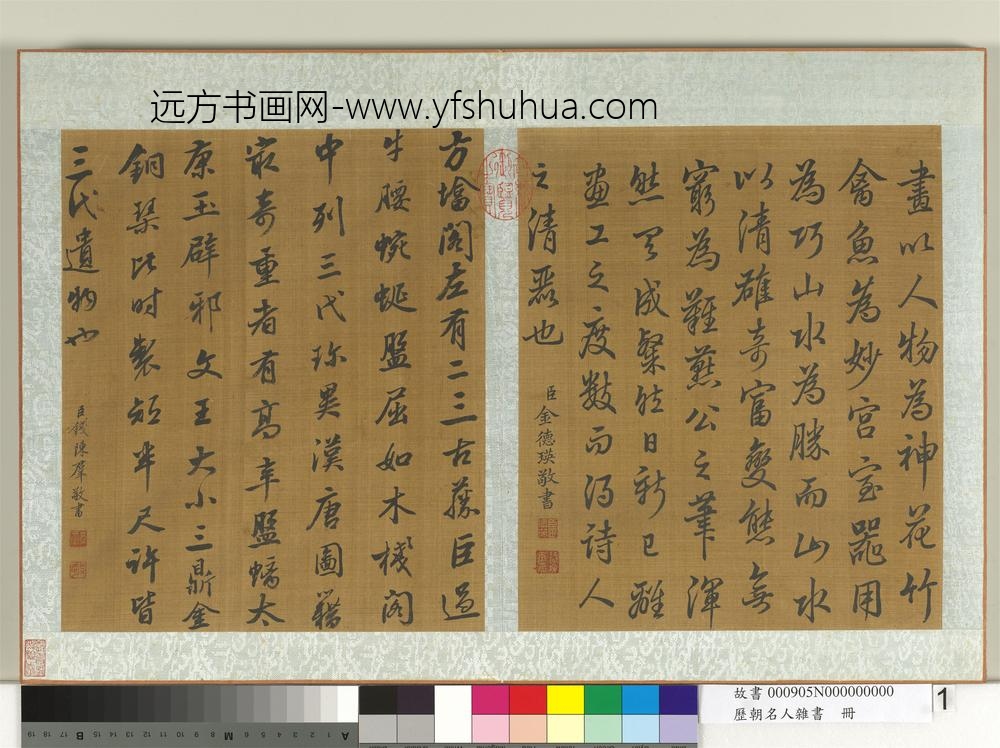 远方书画网-www.yfshuhua.com
畫以人物為神花竹
禽魚為妙宮室器用
為巧山水為勝而山水
以清雄奇富變態無
窮為難燕公之筆渾
然天成粲然日新已離
畫工之度數而得詩人
之清麗也
臣金德瑛敬書
方墖閣左有二三古藤巨過
牛腰蜿蜒盤屈如木棧閣
中列三代珍異漢唐圖籍
最奇重者有高辛盤蟠太
康玉辟邪文王大小三鼎金
銅琹此時製短半尺許皆
三代遺物也
臣錢陳羣敬書
故書 000905N000000000
歷朝名人雜書 冊
1